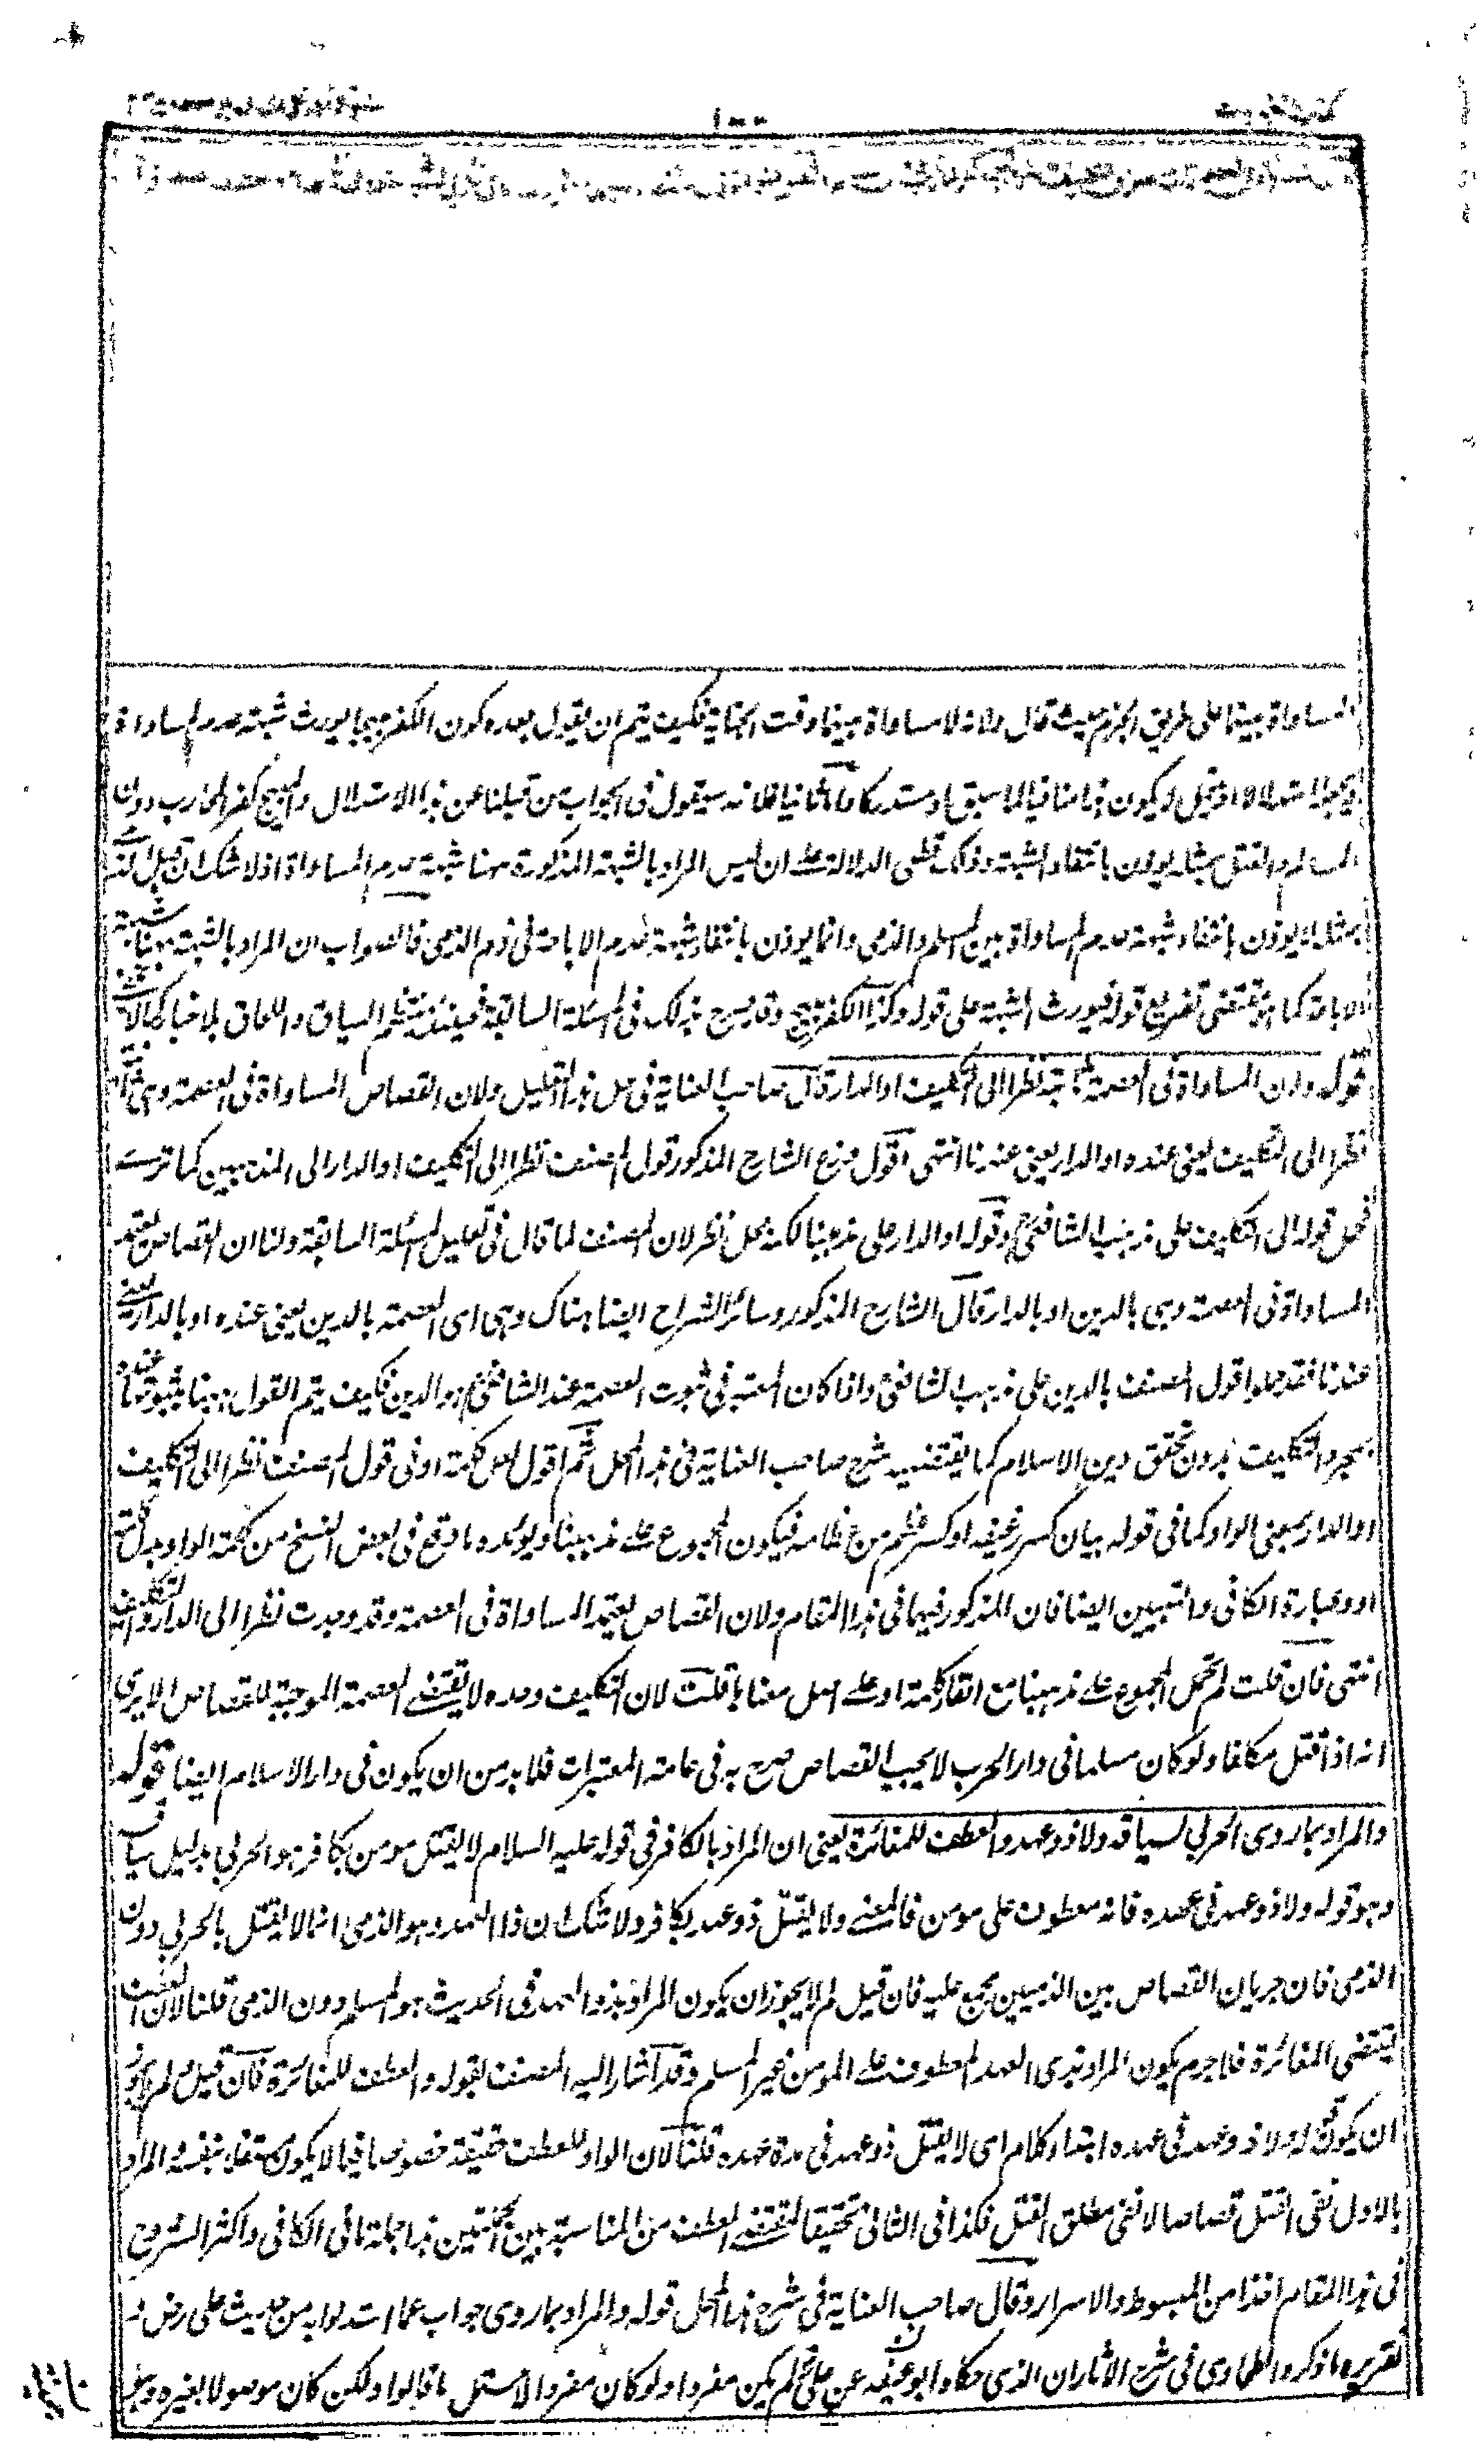 ١٠٠
المساواة بينهما على طريق الجزم حيث قال ولانه لا مساواة بينهما وقت الجناية فكيف يتم ان يقول بعده كون الكفر مبيحا يورث شبهة عدم المساواة
استدلالا اذ قبل او يكون هذا منافيا لما سبق او مستدركا واما ثانيا فلانه سيقول فى الجواب من قبلنا عن هذا الاستدلال والمبيح كفر المحارب دون
المسالم والقتل بمثله يوذن بانتفاء الشبهة وذلك قطعى الدلالة على ان ليس المراد بالشبهة المذكورة ههنا شبهة عدم المساواة اذ لا شك ان قتل الذمى
بمثله لا يوذن بانتفاء شبهة عدم المساواة بين المسلم والذمى وانما يوذن بانتفاء شبهة عدم الاباحة فى دم الذمى فالصواب ان المراد بالشبهة ههنا شبهة
الاباحة كما هو مقتضى تفريع قوله فيورث الشبهة على قوله وكذا الكفر مبيح وقد صرح بذلك فى المسئلة السابقة فحينئذ ينتظم السياق واللحاق بلا خبار كما لا يخفى
قوله ولان المساواة فى العصمة ثابتة نظرا الى التكليف او الدار قال صاحب العناية فى حل هذا التعليل ولان القصاص المساواة فى العصمة وهى ثابتة
نظرا الى التكليف يعنى عنده او الدار يعنى عندنا انتهى اقول وزع الشارح المذكور قول المصنف نظرا الى التكليف او الدار الى المذهبين كما ترى
فحمل قوله الى التكليف على مذهب الشافعى وقوله او الدار على مذهبنا لكنه محل نظر لان المصنف لما قال فى تعليل المسئلة السابقة ولنا ان القصاص يعتمد
المساواة فى العصمة وهى بالدين او بالدار قال الشارح المذكور وسائر الشراح ايضا هناك وهى اى العصمة بالدين يعنى عنده او بالدار يعنى
عندنا فقد حملوا قول المصنف بالدين على مذهب الشافعى واذا كان المعتبر فى ثبوت العصمة عند الشافعى هو الدين فكيف يتم القول ههنا بثبوتها عنده
بمجرد التكليف بدون تحقق دين الاسلام كما يقتضيه شرح صاحب العناية فى هذا المحل ثم اقول لعل كلمة او فى قول المصنف نظرا الى التكليف
او الدار بمعنى الواو كما فى قوله بيان كسر رغيفه او كسر عظم من عظامه فيكون المجموع على مذهبنا ويؤيده ما وقع فى بعض النسخ من كلمة الواو بدل كلمة
او وعبارة الكافى والتبيين ايضا فان المذكور فيهما فى هذا المقام ولان القصاص يعتمد المساواة فى العصمة وقد وجدت نظرا الى الدار والتكليف
انتهى فان قلت لم تحمل المجموع على مذهبنا مع ابقاء كلمة او على اصل معناها قلت لان التكليف وحده لا يقتضى العصمة الموجبة للقصاص الا يرى
انه اذا قتل مكلفا ولو كان مسلما فى دار الحرب لا يجب القصاص صرح به فى عامة المعتبرات فلا بد من ان يكون فى دار الاسلام ايضا قوله
والمراد بما روى الحربى لسياقه ولا ذو عهد والعطف للمغائرة يعنى ان المراد بالكافر فى قوله عليه السلام لا يقتل مومن بكافر هو الحربى بدليل سياقه
وهو قوله ولا ذو عهد فى عهده فانه معطوف على مومن فالمعنى ولا يقتل ذو عهد بكافر ولا شك ان ذا العهد وهو الذمى انما لا يقتل بالحربى دون
الذمى فان جريان القصاص بين الذميين مجمع عليه فان قيل لم لا يجوز ان يكون المراد بذو العهد فى الحديث هو المسلم دون الذمى قلنا لان العطف
يقتضى المغائرة فلا جرم يكون المراد بذى العهد المعطوف على المومن غير المسلم وقد اشار اليه المصنف بقوله والعطف للمغائرة فان قيل لم لا يجوز
ان يكون قوله ولا ذو عهد فى عهده ابتداء كلام اى لا يقتل ذو عهد فى مدة عهده قلنا لان الواو للعطف حقيقة خصوصا فيما لا يكون مستقلا بنفسه والمراد
بالاول نفى القتل قصاصا لا نفى مطلق القتل فكذا فى الثانى تحقيقا لمقتضى العطف من المناسبة بين الجملتين هذا جملة ما فى الكافى واكثر الشروح
فى هذا المقام اخذا من المبسوط والاسرار وقال صاحب العناية فى شرح هذا المحل قوله والمراد بما روى جواب عما استدل به من حديث على رض
تقريره ما ذكره الطحاوى فى شرح الاثار ان الذى حكاه ابو جحيفة عن على لم يكن مفردا ولو كان مفردا لاحتمل ما قالوا ولكن كان موصولا بغيره وهو